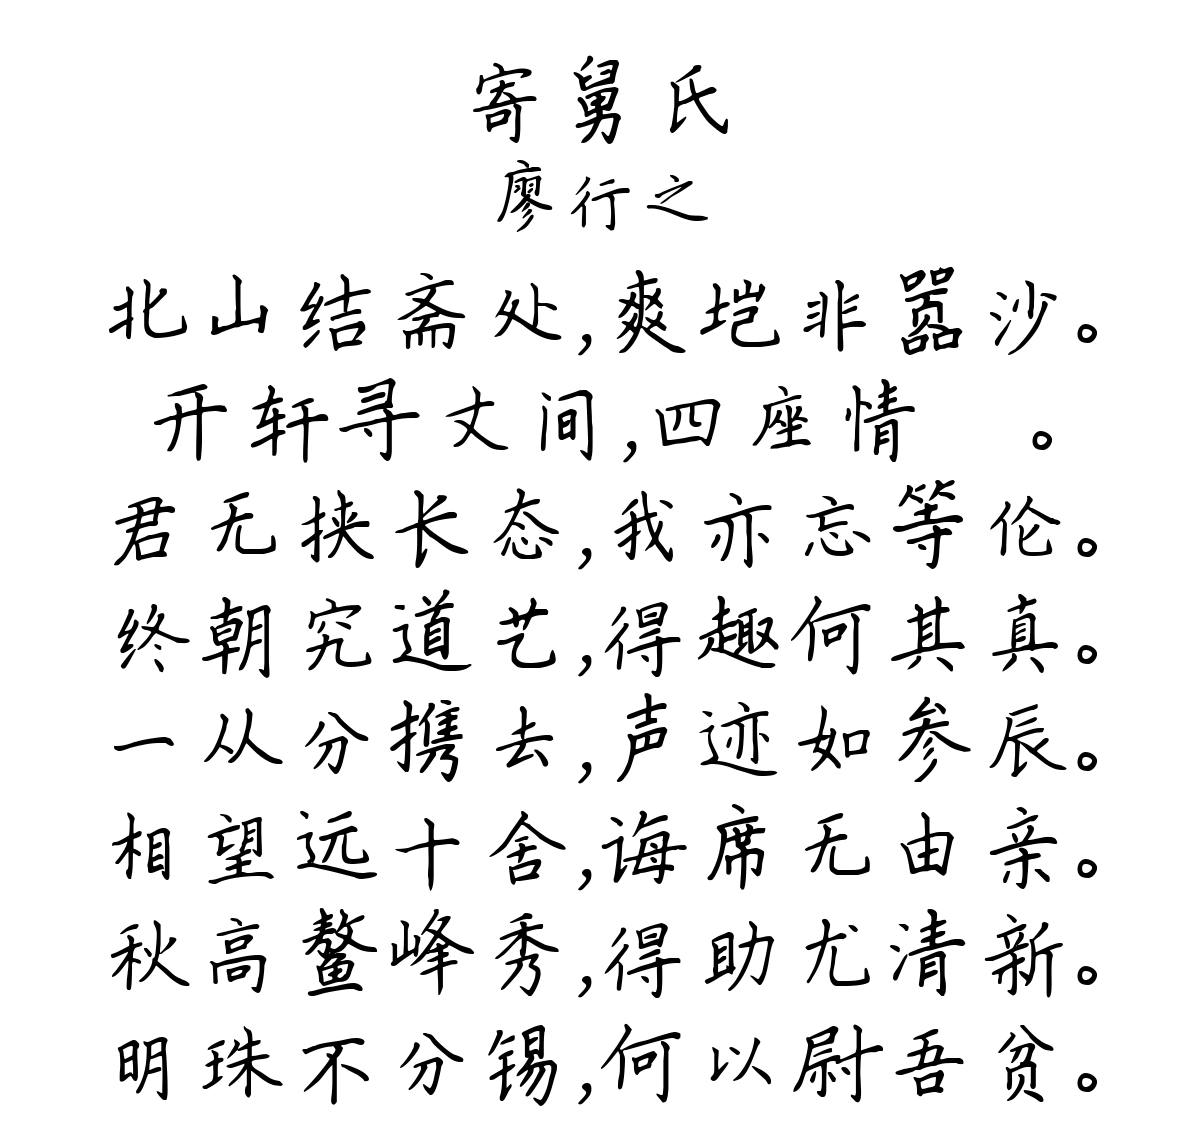 寄舅氏
廖行之
北山结斋处,爽垲非嚣沙。
开轩寻丈间,四座情 。
君无挟长态,我亦忘等伦。
终朝究道艺,得趣何其真。
一从分携去,声迹如参辰。
相望远十舍,诲席无由亲。
秋高鳌峰秀,得助尤清新。
明珠不分锡,何以尉吾贫。